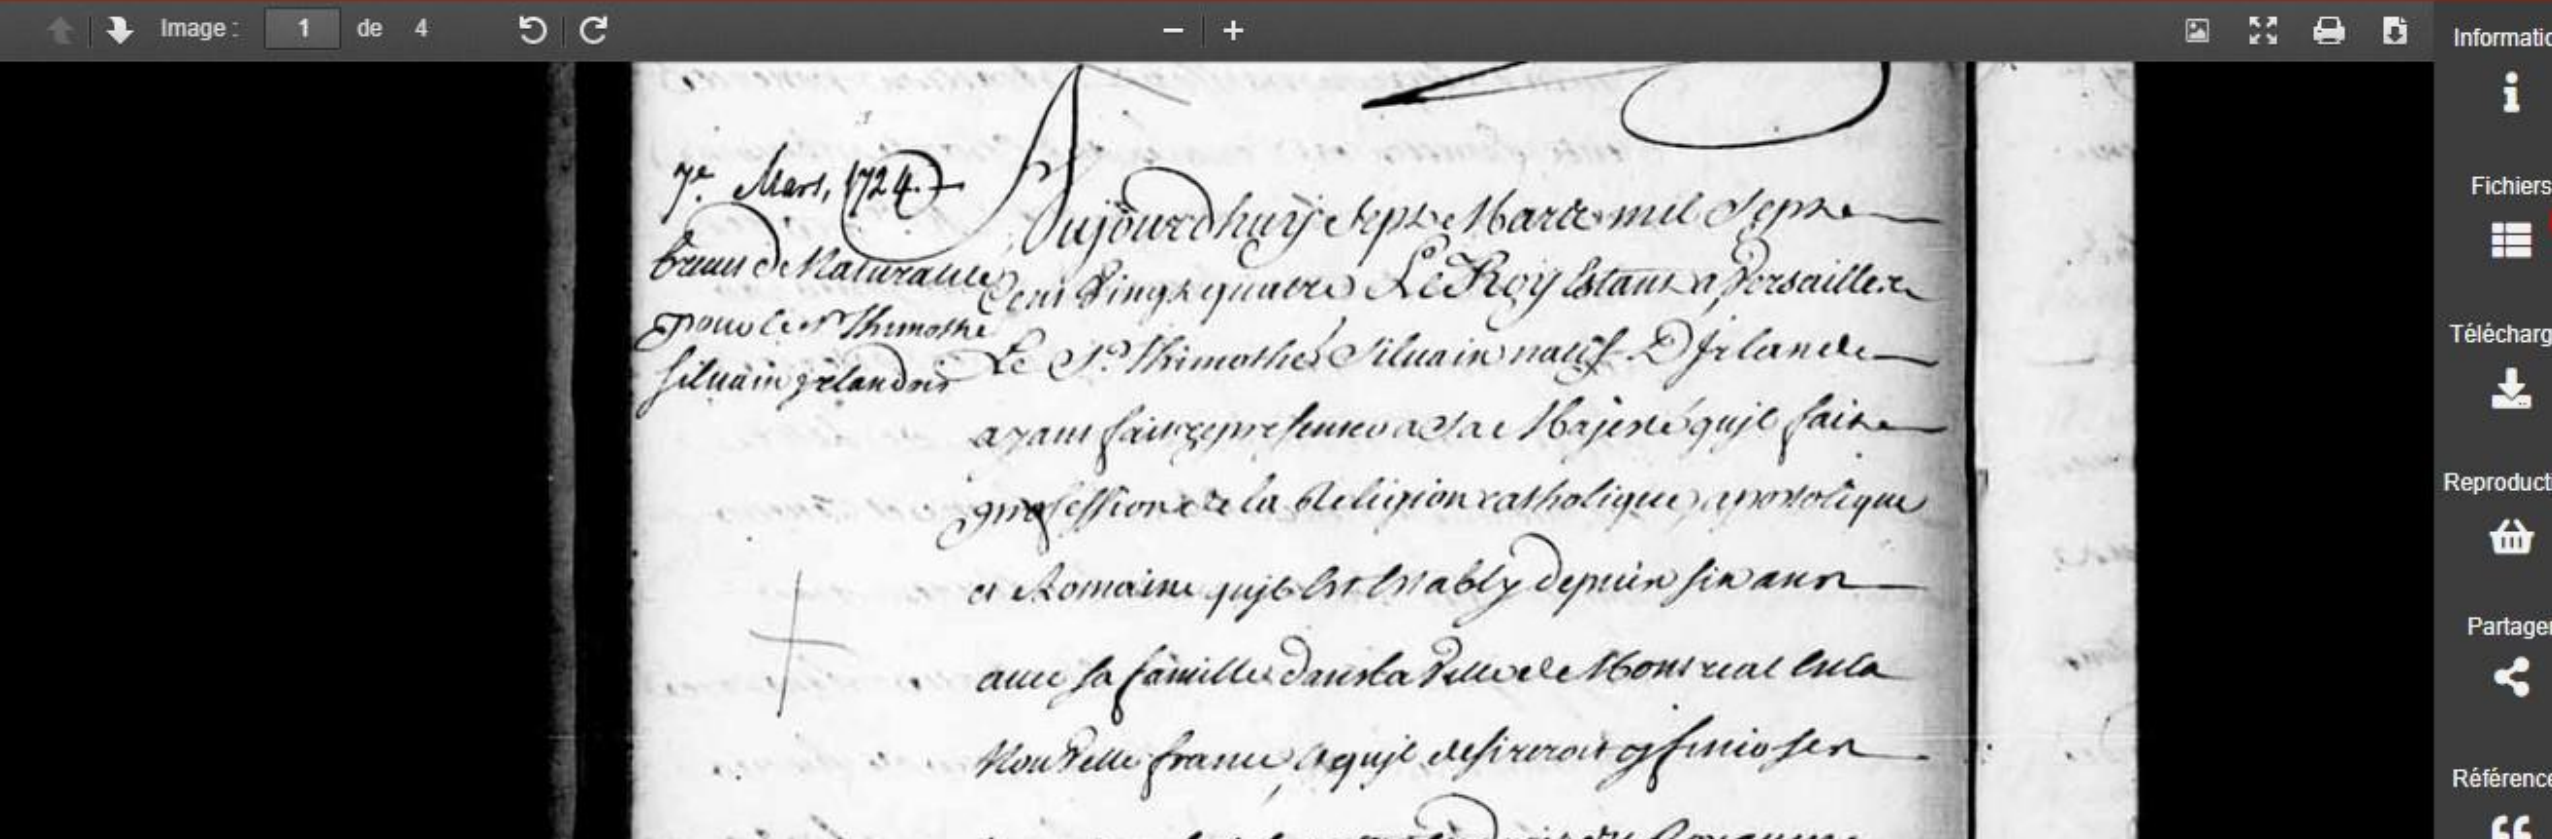 Image : 1 de 4
Informatio
Fichiers
Télécharg
Reproducti
Partager
Référence
7e. Mars, 1724.
brevet de Naturalité
pour le Sr Thimothé
Silvain jrlandois
Aujourd'huy sept Mars mil sept
cent vingt quatre Le Roy Estant a Versailles
Le Sr. Thimothé Silvain natif D'Jrlande
ayant fait representer a Sa Majesté qu'jl fait
profession de la Religion catholique, apostolique
et Romaine qu'jl Est Estably depuis six ans
avec sa famille dans la Ville de Montreal En la
Nouvelle france, Et qu'jl desireroit y finir ses